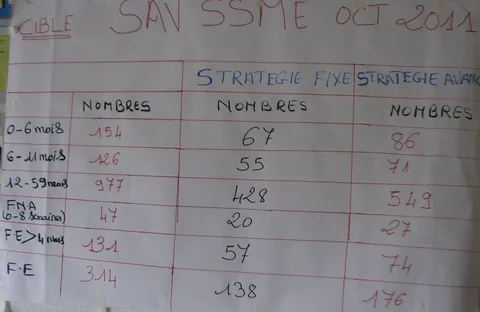 CIBLE SAV SSME OCT 2011
STRATEGIE FIXE STRATEGIE AVAN
NOMBRES NOMBRES NOMBRES
0-6 mois 154 67 86
6-11 mois 126 55 71
12-59 mois 977 428 549
FNA (6-8 semaines) 47 20 27
F.E>4 mois 131 57 74
F.E 314 138 176